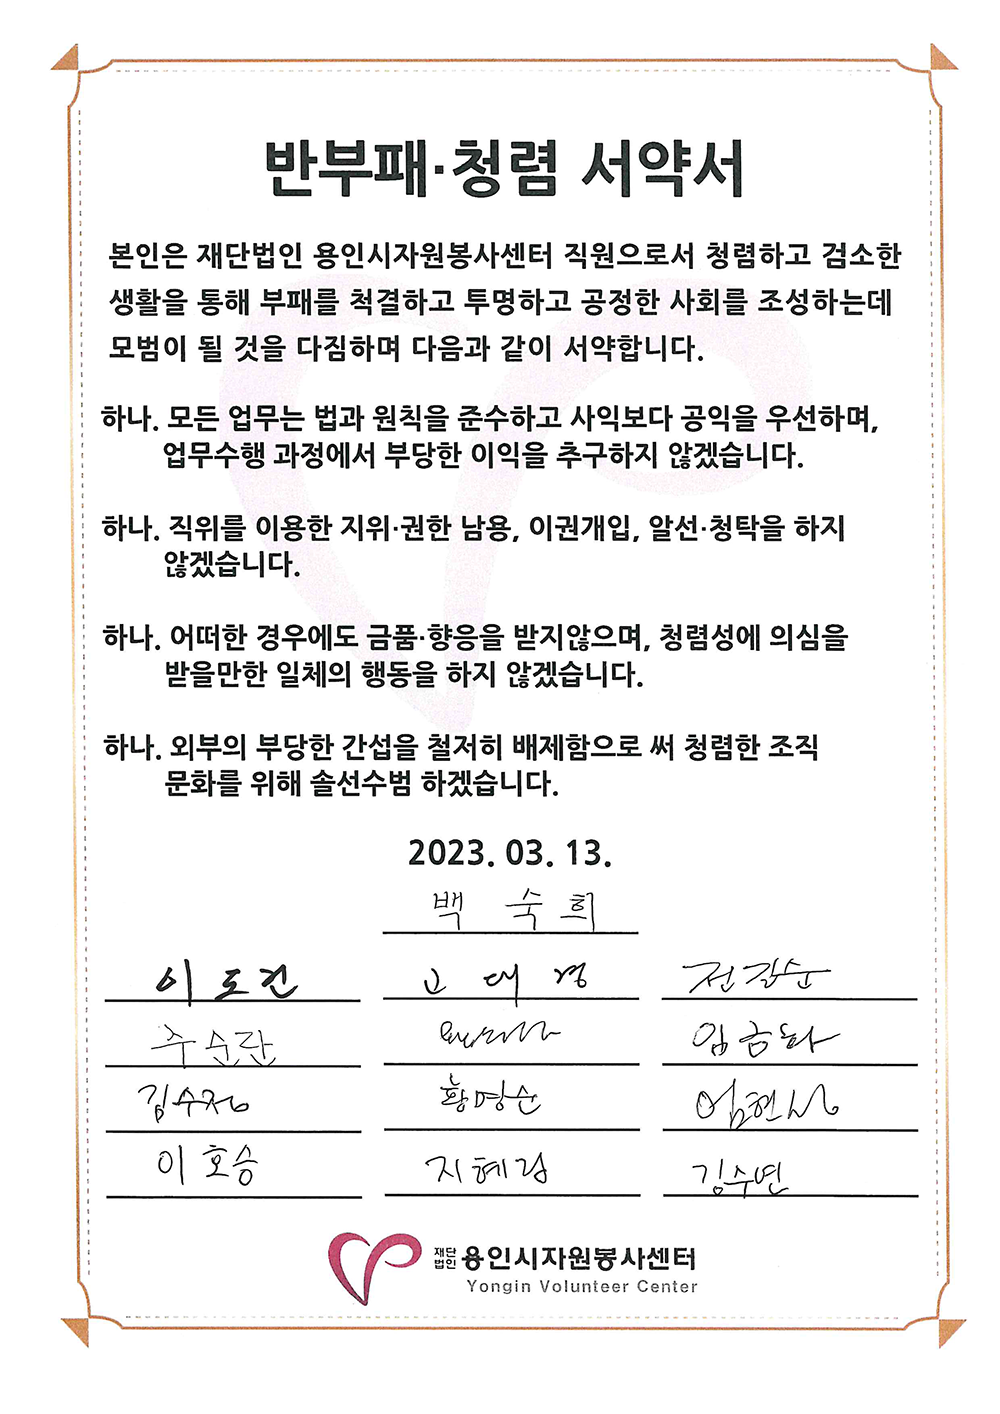 반부패·청렴 서약서
본인은 재단법인 용인시자원봉사센터 직원으로서 청렴하고 검소한
생활을 통해 부패를 척결하고 투명하고 공정한 사회를 조성하는데
모범이 될 것을 다짐하며 다음과 같이 서약합니다.
하나. 모든 업무는 법과 원칙을 준수하고 사익보다 공익을 우선하며,
업무수행 과정에서 부당한 이익을 추구하지 않겠습니다.
하나. 직위를 이용한 지위·권한 남용, 이권개입, 알선·청탁을 하지
않겠습니다.
하나. 어떠한 경우에도 금품·향응을 받지않으며, 청렴성에 의심을
받을만한 일체의 행동을 하지 않겠습니다.
하나. 외부의 부당한 간섭을 철저히 배제함으로 써 청렴한 조직
문화를 위해 솔선수범 하겠습니다.
2023. 03. 13.
백 숙 희
이 도 건 고 대 경 전길순
주순란 임금화
김수정 황명순
이 호 승 지혜림 김수연
재단법인 용인시자원봉사센터
Yongin Volunteer Center